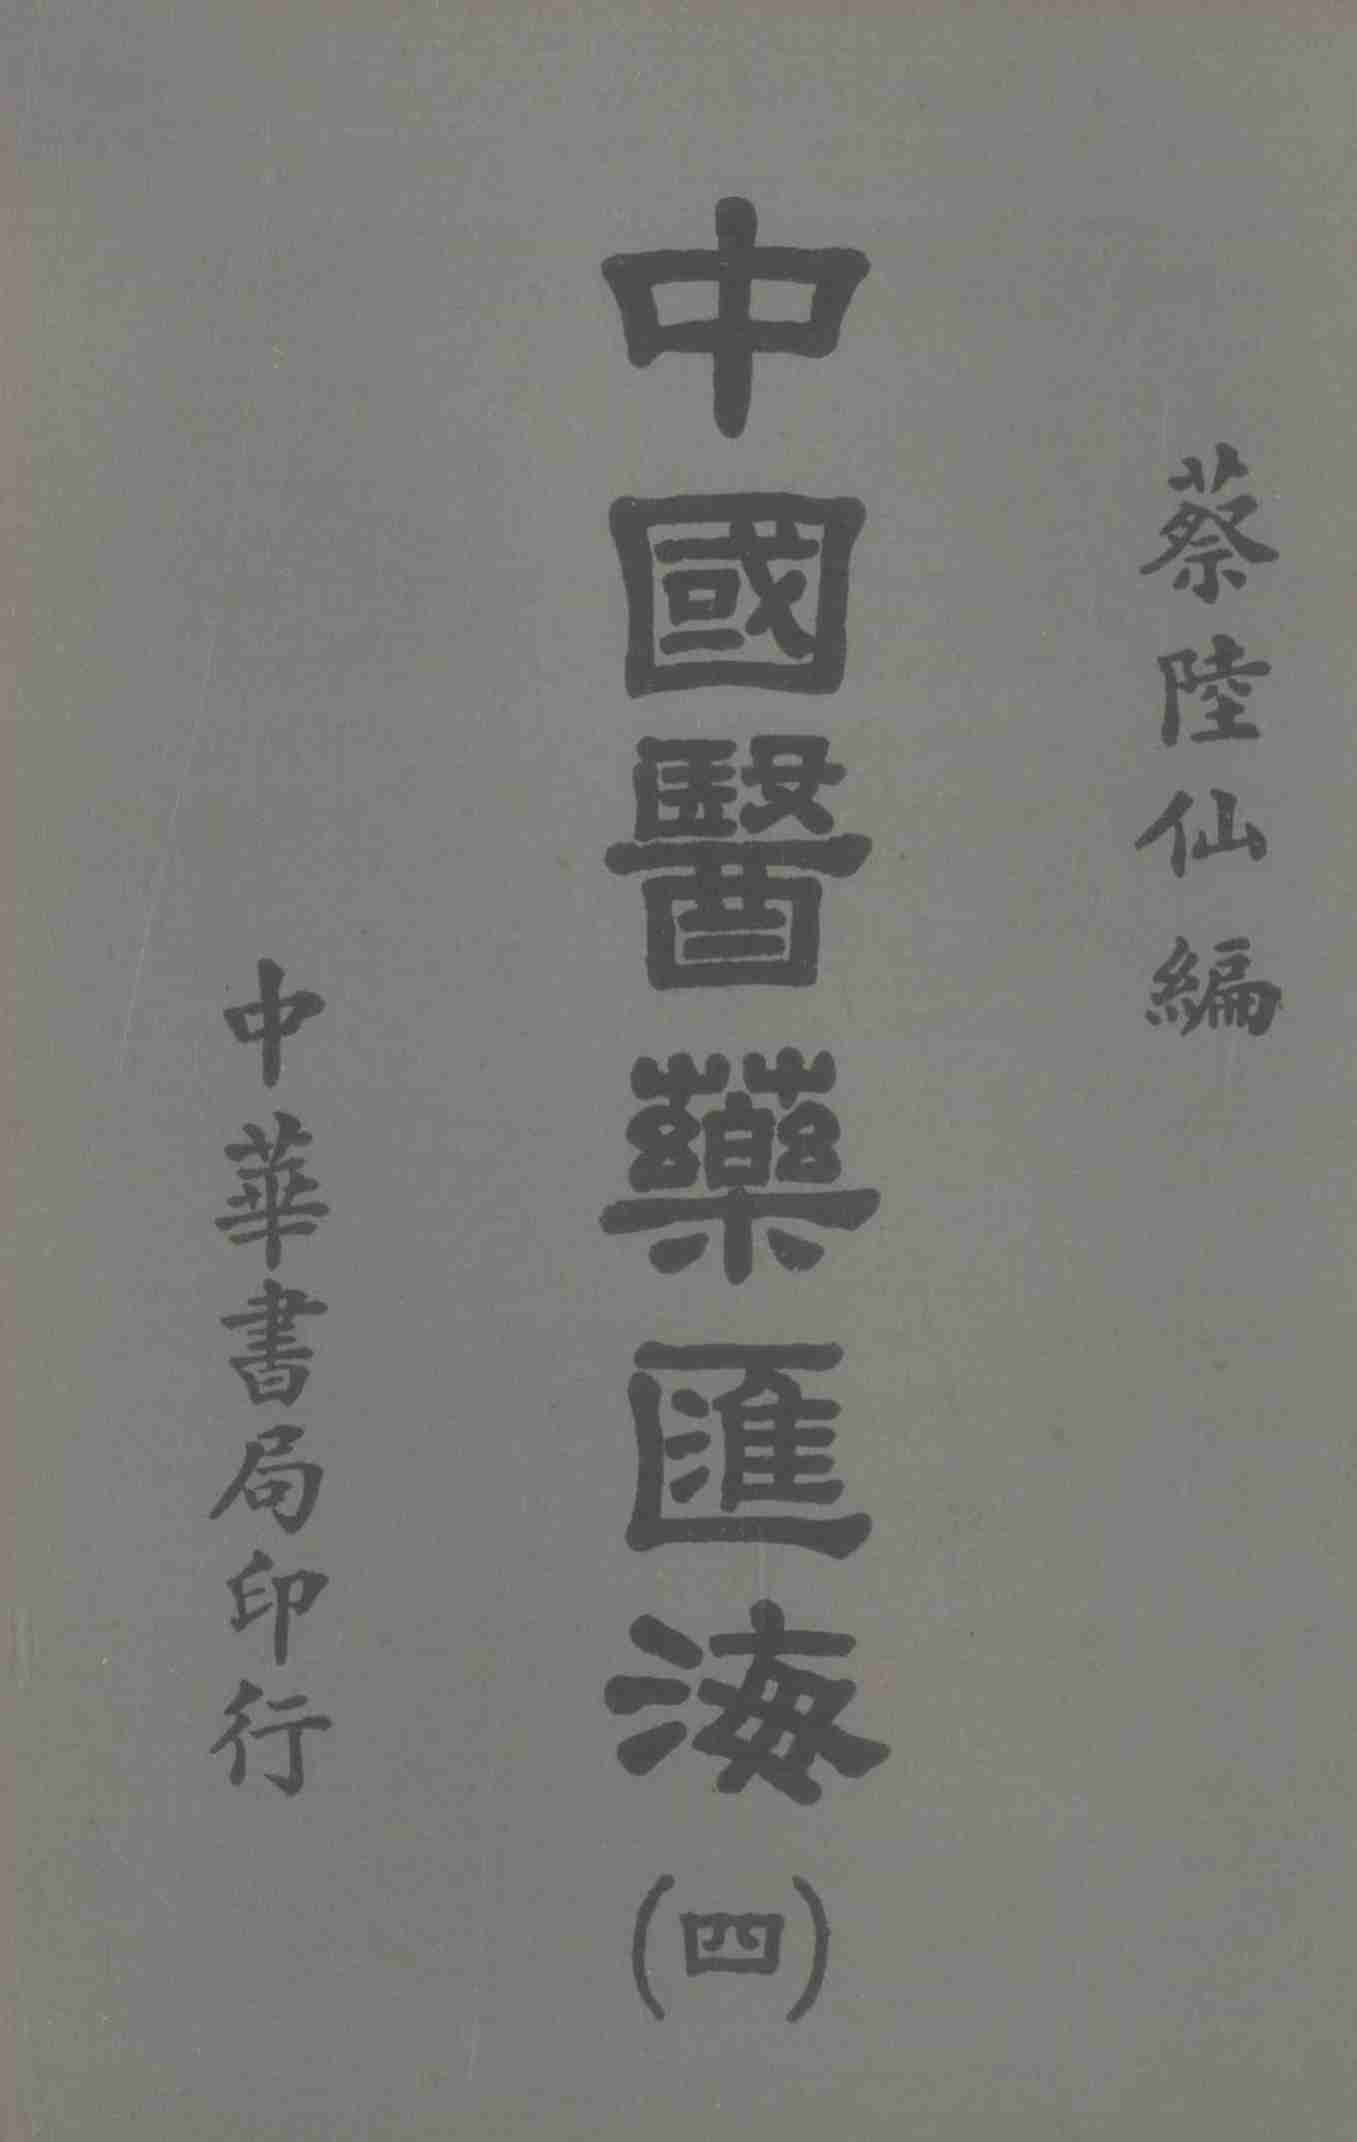 蔡陸仙編
中國醫藥匯海(四)
中華書局印行